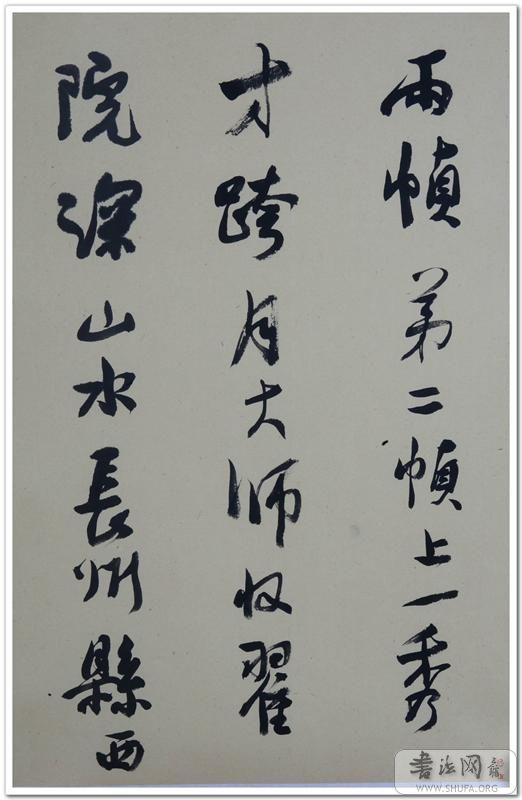 雨幀第二幀上一秀
才跨月大师收翟
院深山水長州縣西
書法网
WWW.SHUFA.ORG